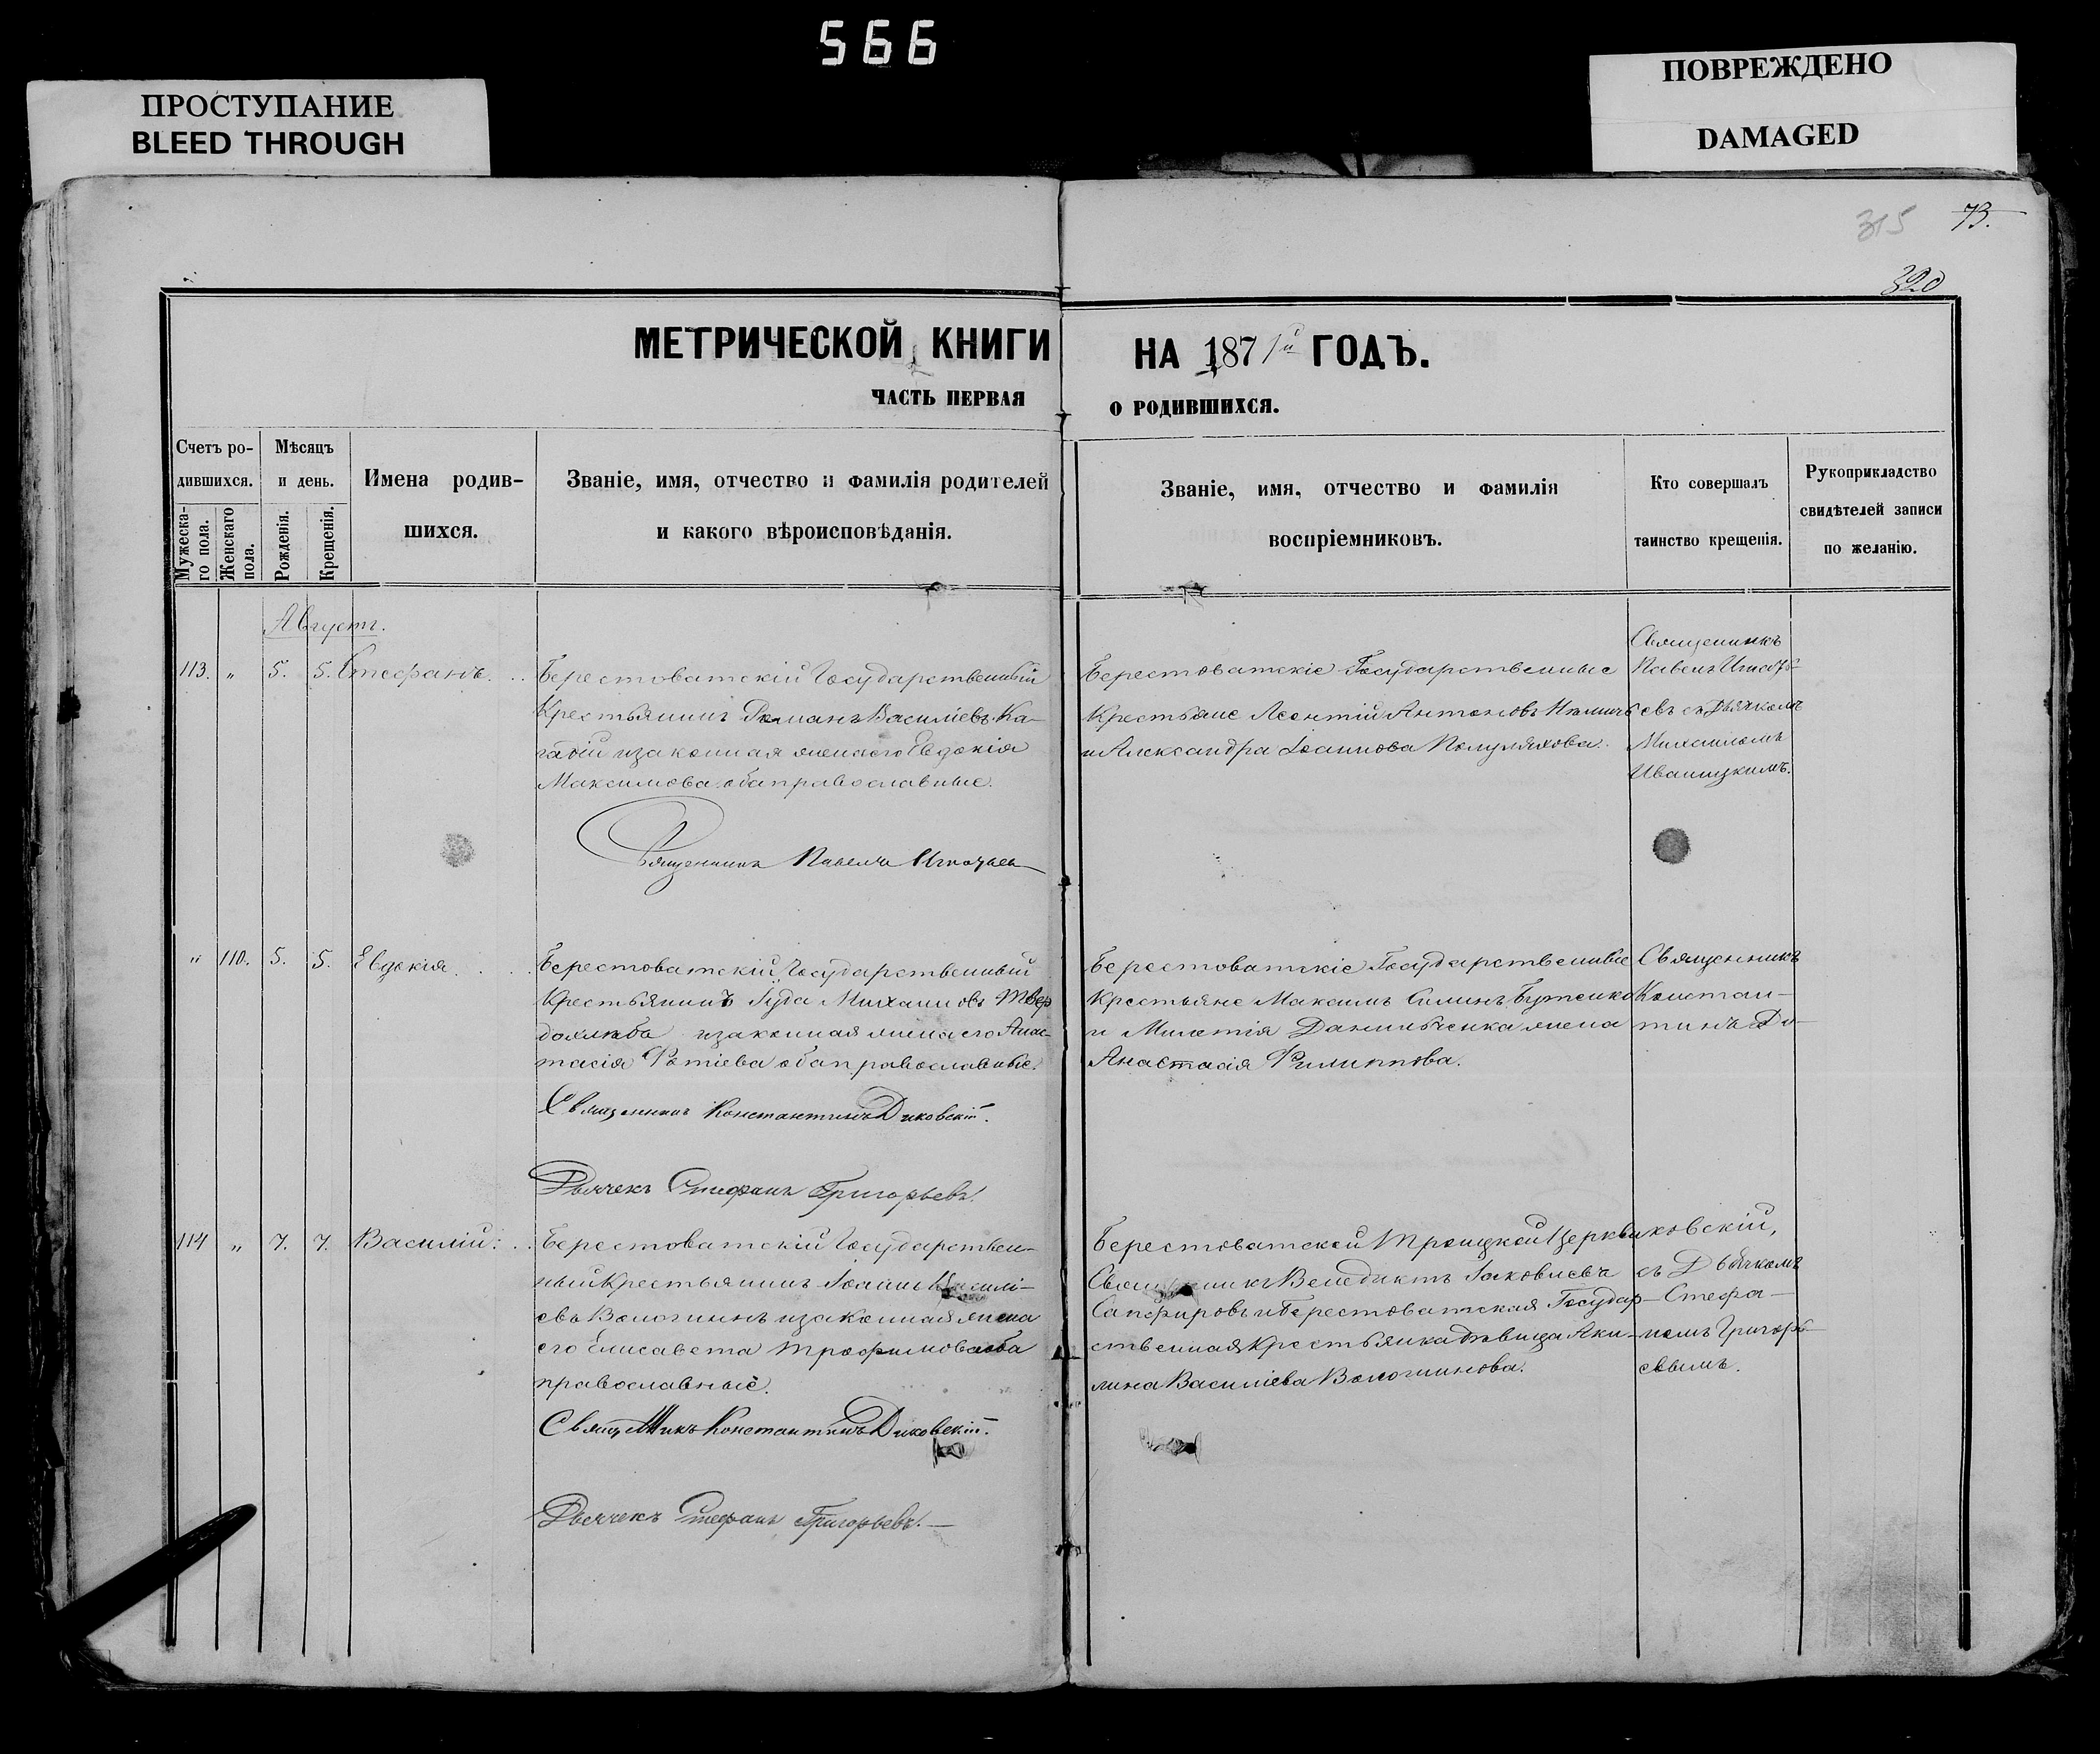 566
ПРОСТУПАНИЕ
BLEED THROUGH
ПОВРЕЖДЕНО
DAMAGED
315 73.
320
МЕТРИЧЕСКОЙ КНИГИ НА 1871й ГОДЪ.
ЧАСТЬ ПЕРВАЯ О РОДИВШИХСЯ.
Счетъ ро-
дившихся.
Мужеска-
го пола.
Женскаго
пола.
Мѣсяцъ
и день.
Рожденія.
Крещенія.
Имена родив-
шихся.
Званіе, имя, отчество и фамилія родителей
и какого вѣроисповѣданія.
Званіе, имя, отчество и фамилія
воспріемниковъ.
Кто совершалъ
таинство крещенія.
Рукоприкладство
свидѣтелей записи
по желанію.
Августъ.
113. „ 5. 5. Стефанъ.
Берестоватскій Государственный
Крестьянинъ Романъ Василіевъ Ка-
гадій и законная жена его Евдокія
Максимова оба православные.
Священникъ Павелъ Игнатьев
Берестоватскіе Государственные
Крестьяне Леонтій Антоновъ
и Александра Іоаннова Полуляхова.
Священникъ
Павелъ Игнатьь-
евъ съ Дьячкомъ
Михаиломъ
Иваницкимъ.
„ 110. 5. 5. Евдокія.
Берестоватскій Государственный
Крестьянинъ Іуда Михаиловъ Твер
дохлѣбъ и законная жена его Анас-
тасія Фотіева оба православные.
Священникъ Константинъ Диковскій.
Дьячекъ Стефанъ Григорьевъ.
Берестоватскіе Государственные
Крестьяне Максимъ Силинъ Бутенко
и Милетія Данильченка жена
Анастасія Филиппова.
Священникъ
Констан-
тинъ Ди-
114 „ 7. 7. Василій.
Берестоватскій Государствен-
ный Крестьянинъ Іоаннъ Василі-
евъ Вологинъ и законная жена
его Елисавета Трофимова оба
православные.
Священникъ Константинъ Диковскій.
Дьячекъ Стефанъ Григорьевъ.
Берестоватской Троицкой Церкви
Священникъ Венедиктъ Іаковлевъ
Сапфировъ и Берестоватская Государ-
ственная Крестьянка дѣвица Аки-
лина Василіева Вологинова.
ковскій,
съ Дьячкомъ
Стефа-
номъ Григорь-
евымъ.